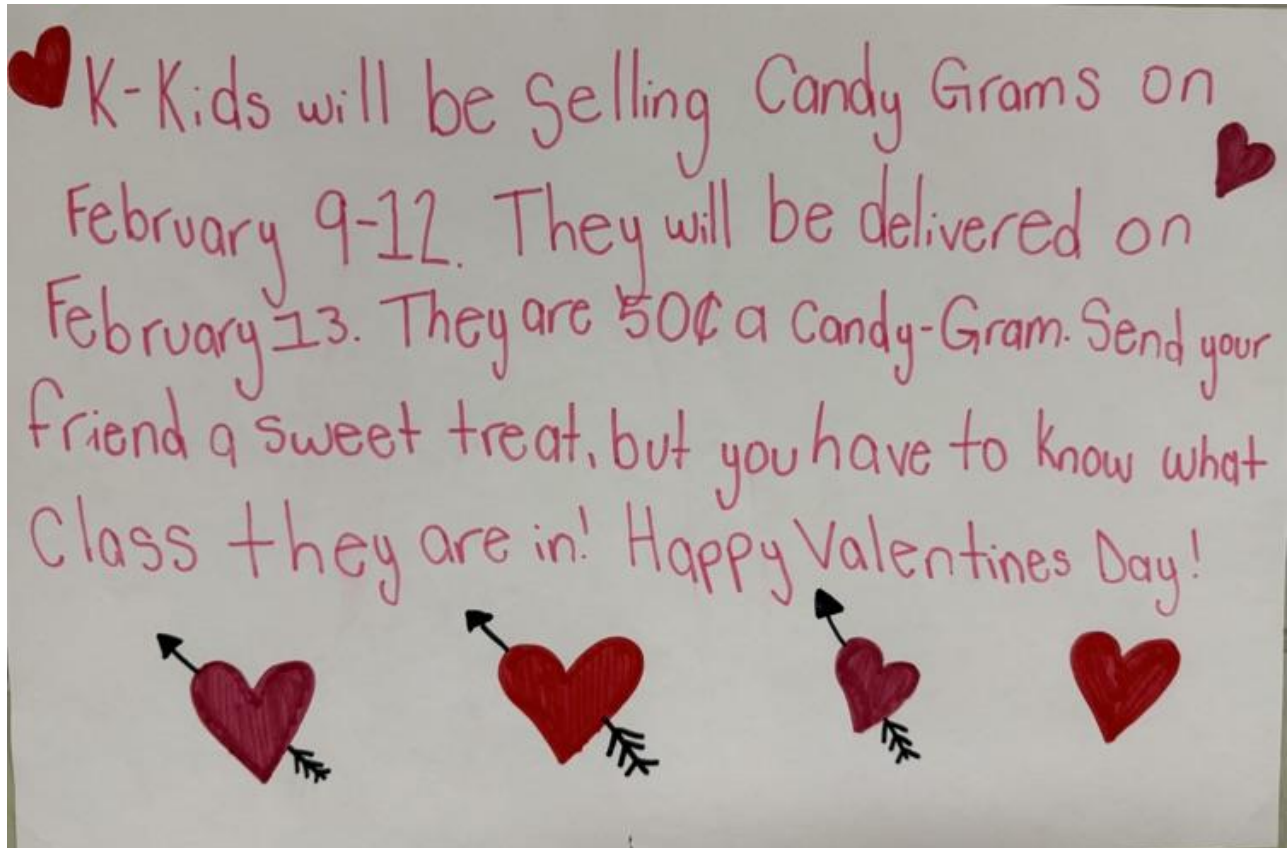 K-Kids will be Selling Candy Grams on
February 9-12. They will be delivered on
February 13. They are 50¢ a Candy-Gram. Send your
friend a sweet treat, but you have to know what
Class they are in! Happy Valentines Day!